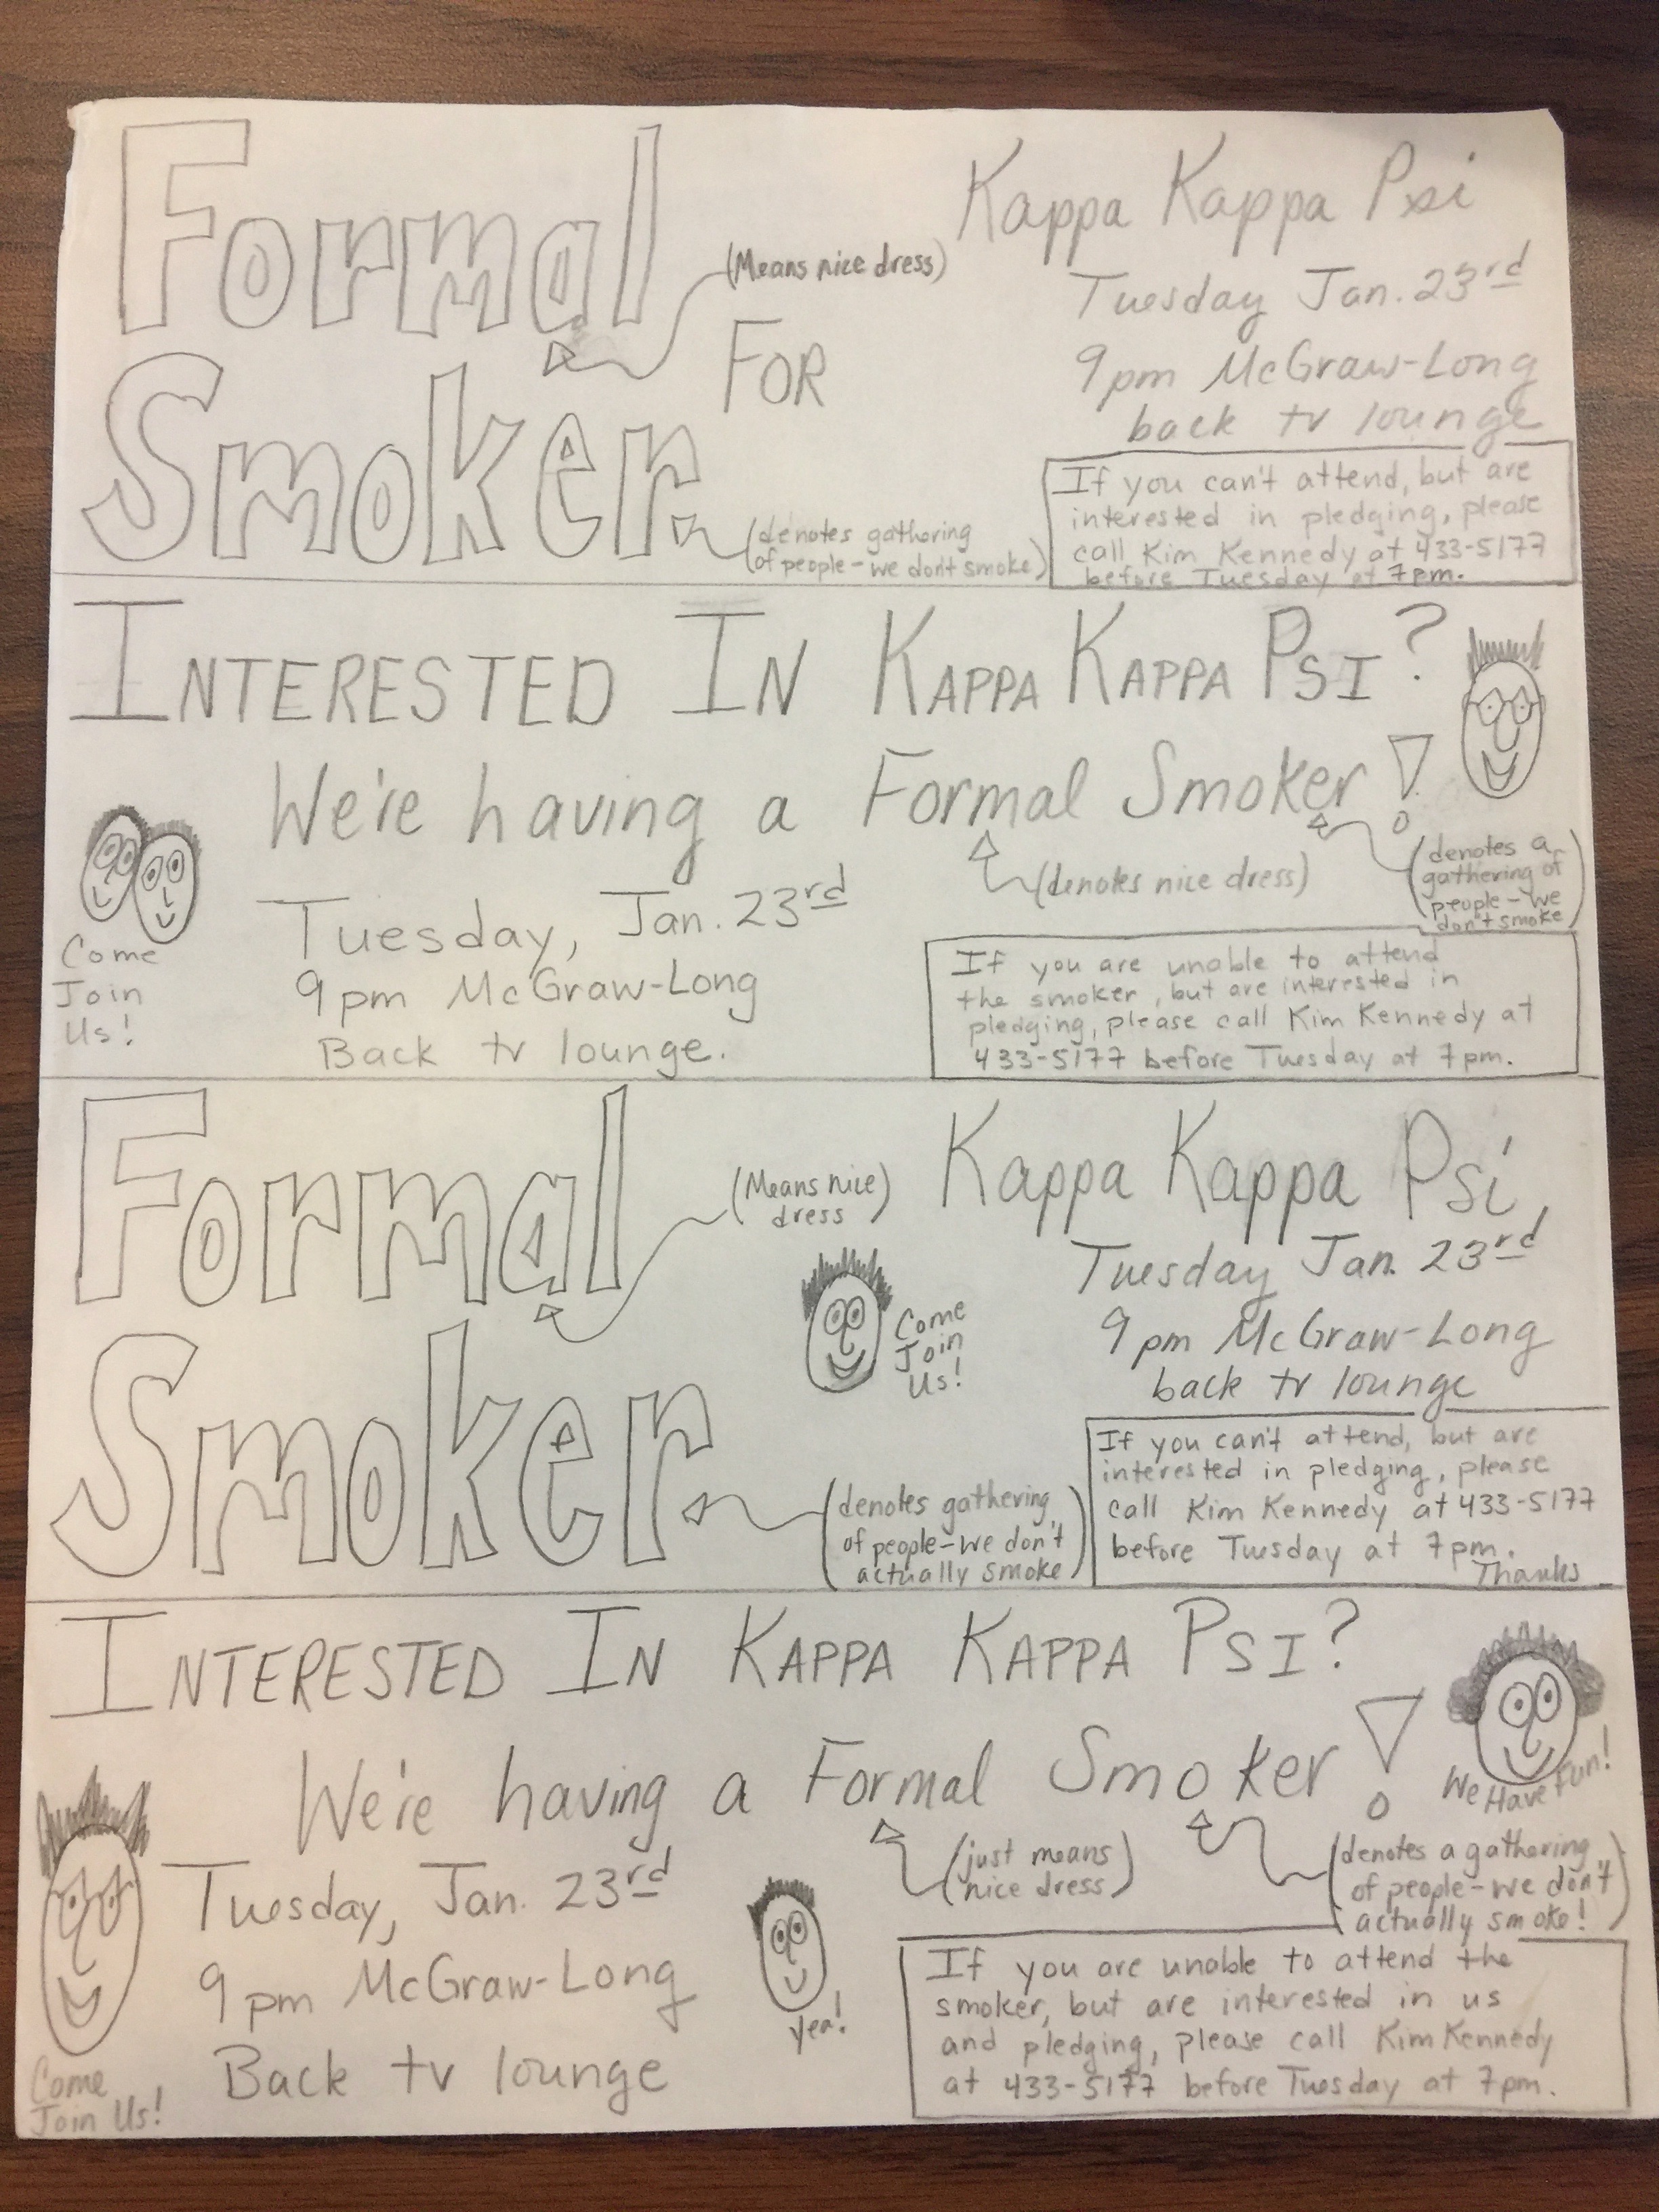 Formal
(Means nice dress)
Smoker
FOR
(denotes gathering
of people - we dont smoke)
Kappa Kappa Psi
Tuesday Jan. 23rd
9pm McGraw-Long
back tv lounge
If you can't attend, but are
interested in pledging, please
call Kim Kennedy at 433-5177
before Tuesday at 7pm.
INTERESTED IN KAPPA KAPPA PSI?
We're having a Formal Smoker!
(denotes nice dress)
(denotes a
gathering of
people - we
don't smoke)
Come
Join
Us!
Tuesday, Jan. 23rd
9pm McGraw-Long
Back tv lounge.
If you are unable to attend
the smoker, but are interested in
pledging, please call Kim Kennedy at
433-5177 before Tuesday at 7pm.
Formal
(Means nice
dress)
Smoker
(denotes gathering
of people - we don't
actually smoke)
Come
Join
Us!
Kappa Kappa Psi
Tuesday Jan. 23rd
9pm McGraw-Long
back tv lounge
If you can't attend, but are
interested in pledging, please
call Kim Kennedy at 433-5177
before Tuesday at 7pm.
Thanks
INTERESTED IN KAPPA KAPPA PSI?
We're having a Formal Smoker!
We Have Fun!
(just means
nice dress)
(denotes a gathering
of people - we don't
actually smoke!)
Tuesday, Jan. 23rd
9pm McGraw-Long
Back tv lounge
Come
Join Us!
Yea!
If you are unable to attend the
smoker, but are interested in us
and pledging, please call Kim Kennedy
at 433-5177 before Tuesday at 7pm.